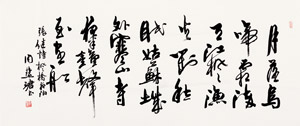 月落烏
啼霜滿
天江楓漁
火對愁
眠姑蘇城
外寒山寺
夜半鐘聲
到客船
張继詩楓橋夜泊
周